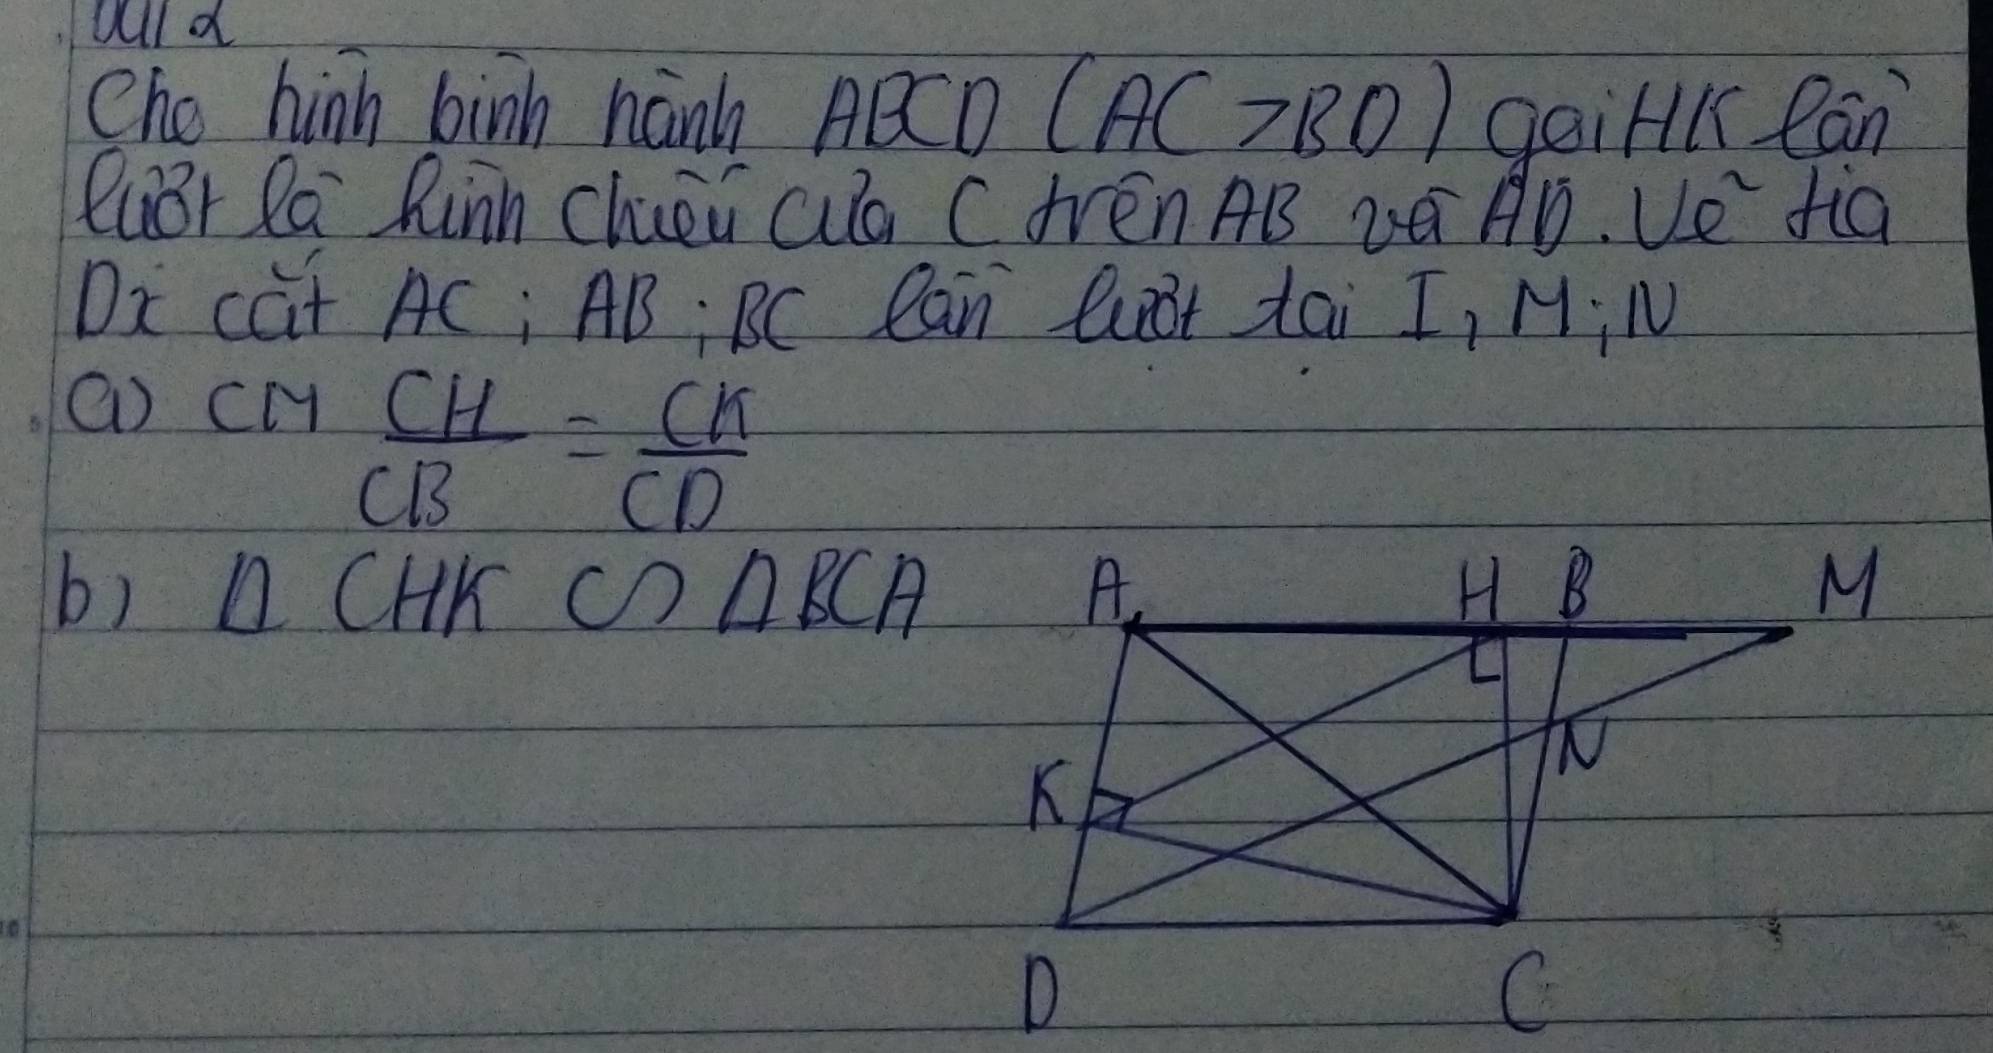 bài 2
Cho hình bình hành ABCD (AC > BD) gọi HK lần
lượt là hình chiếu của C trên AB và AD. Vẽ tia
Dx cắt AC; AB; BC lần lượt tại I, M; N
a) CM CH/CB = CK/CD
b) Δ CHK ∽ Δ BCA
A H B M
K N
D C